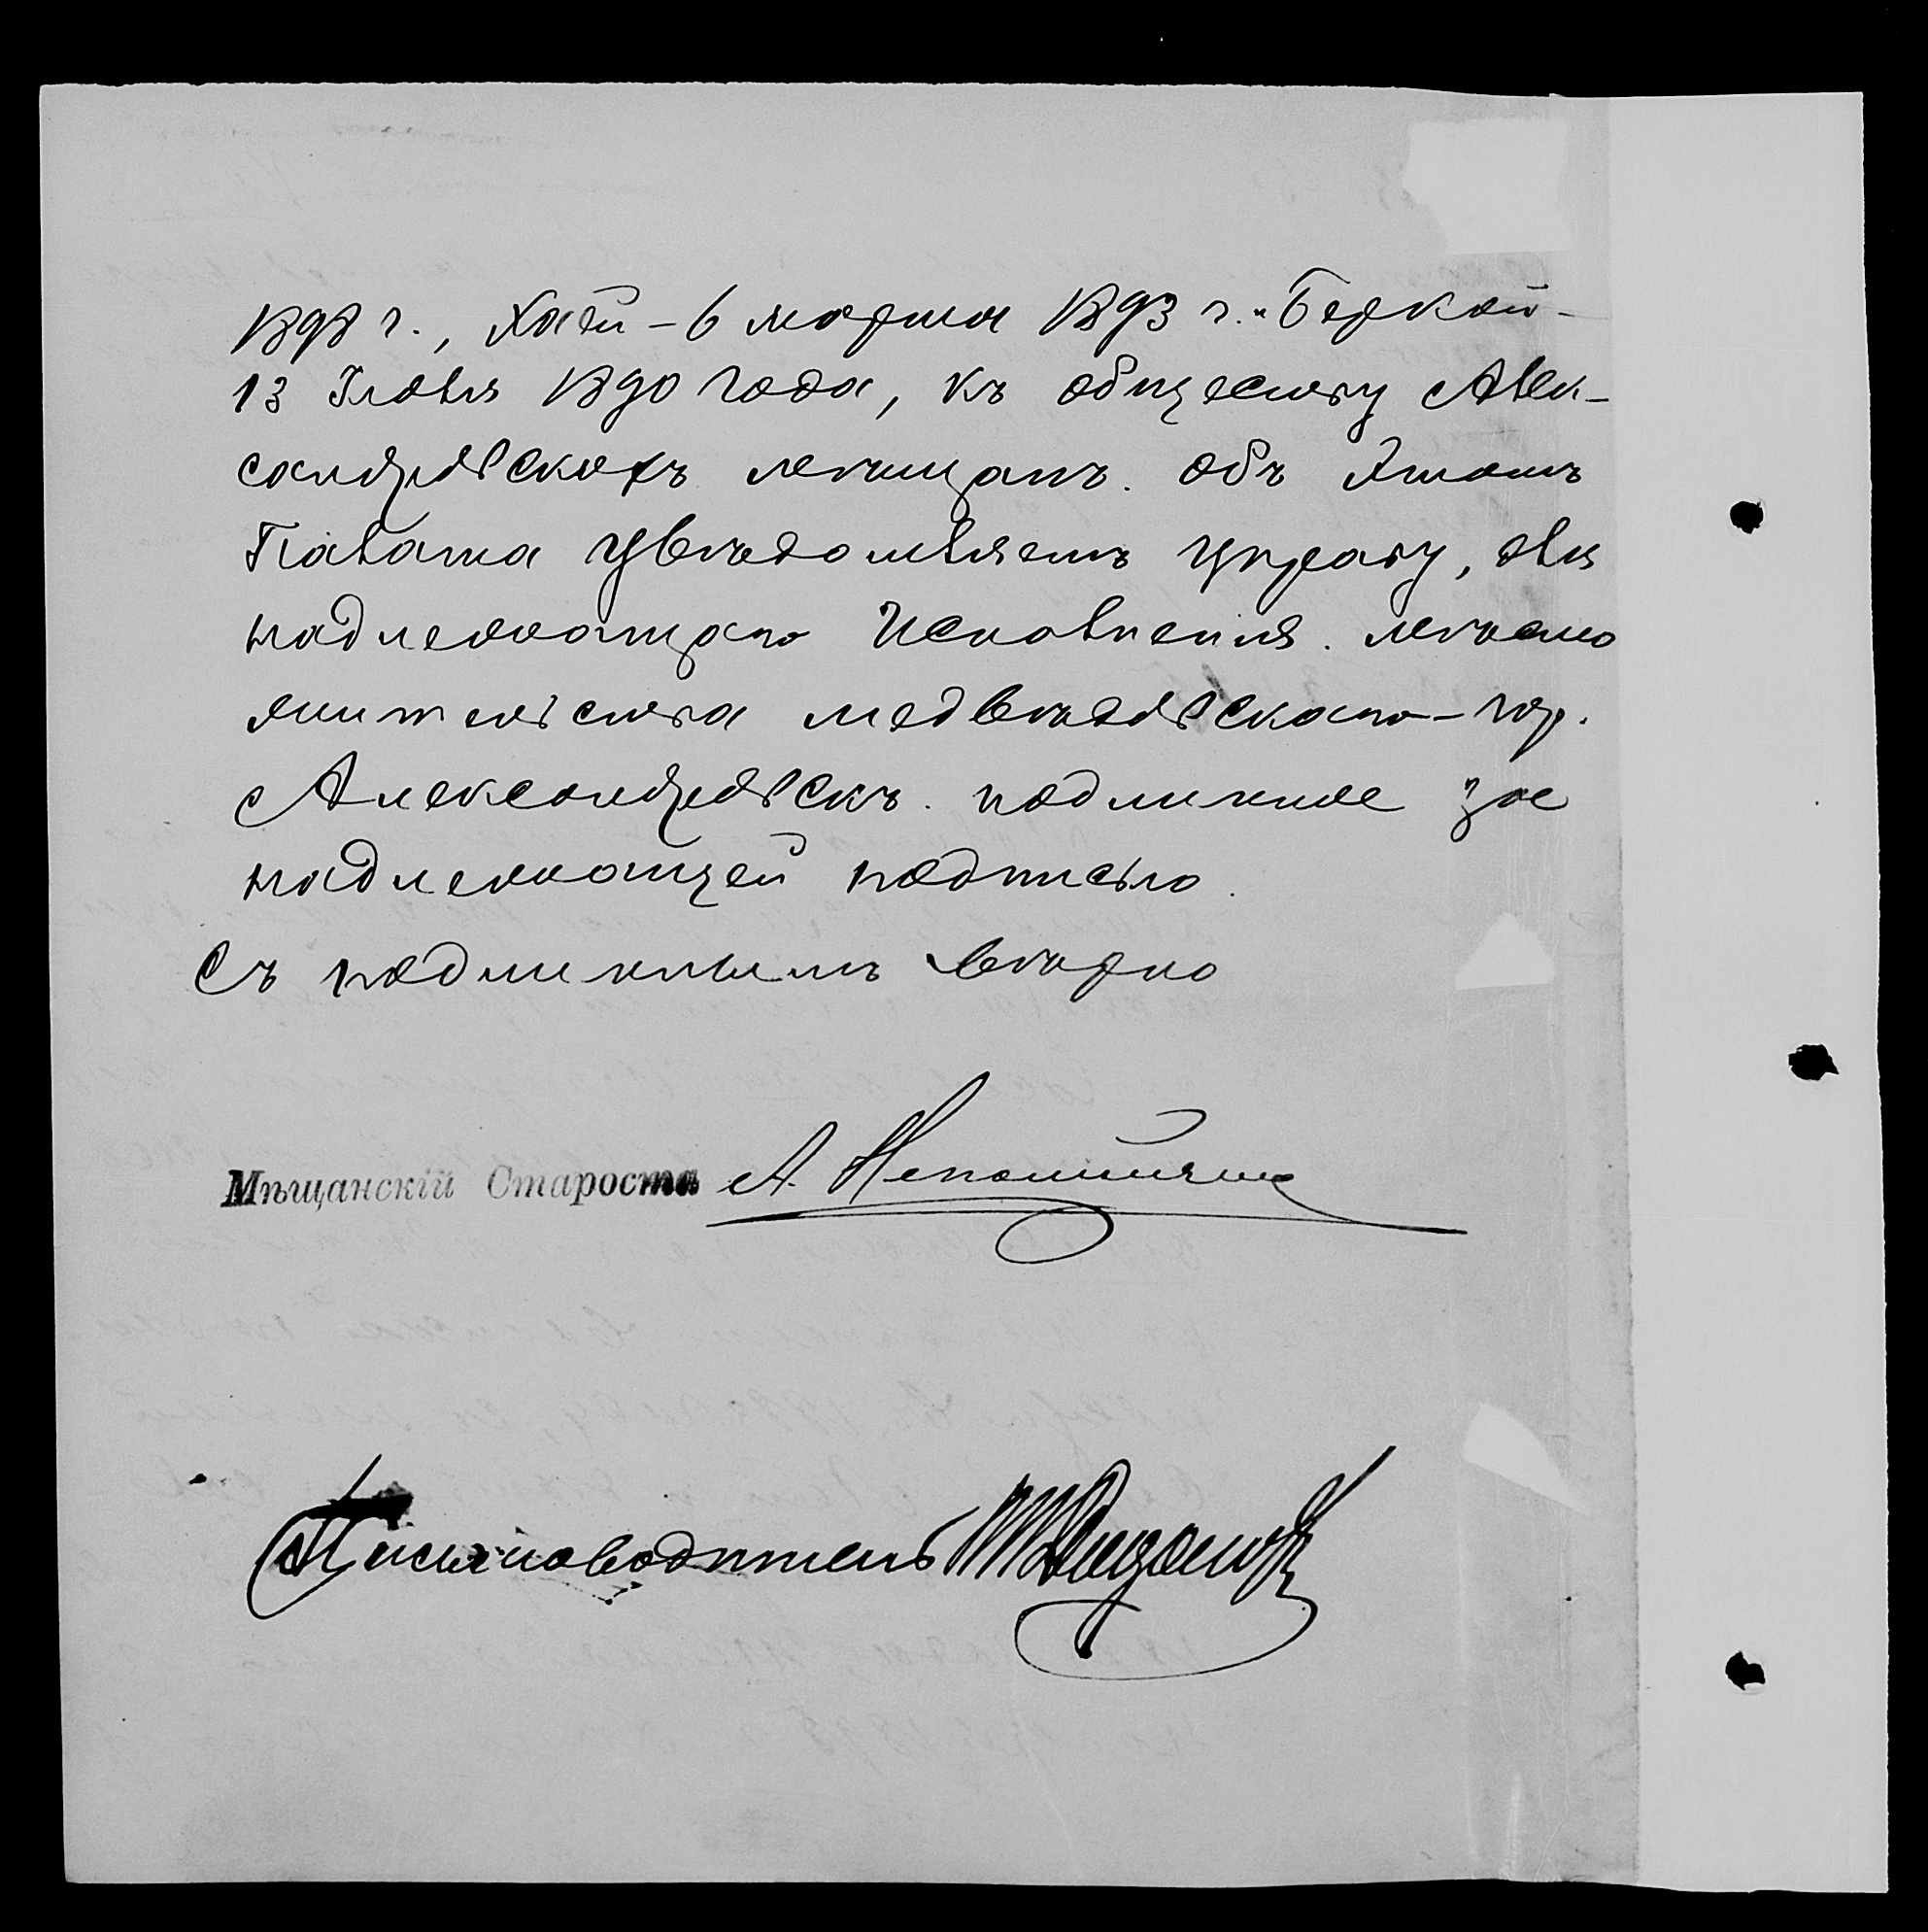 1898 г., Хаей – 6 марта 1893 г. и Беркой –
13 Iюля 1890 года, къ обществу Алек-
сандровскихъ мѣщанъ. Объ этомъ
Палата увѣдомляетъ управу, для
надлежащаго исполненiя. мѣсто
жительства Медвѣдовскаго – гор.
Александровскъ. подлинное за
надлежащей подписью.
Съ подлиннымъ вѣрно
Мѣщанскiй Староста А.
Письмоводитель